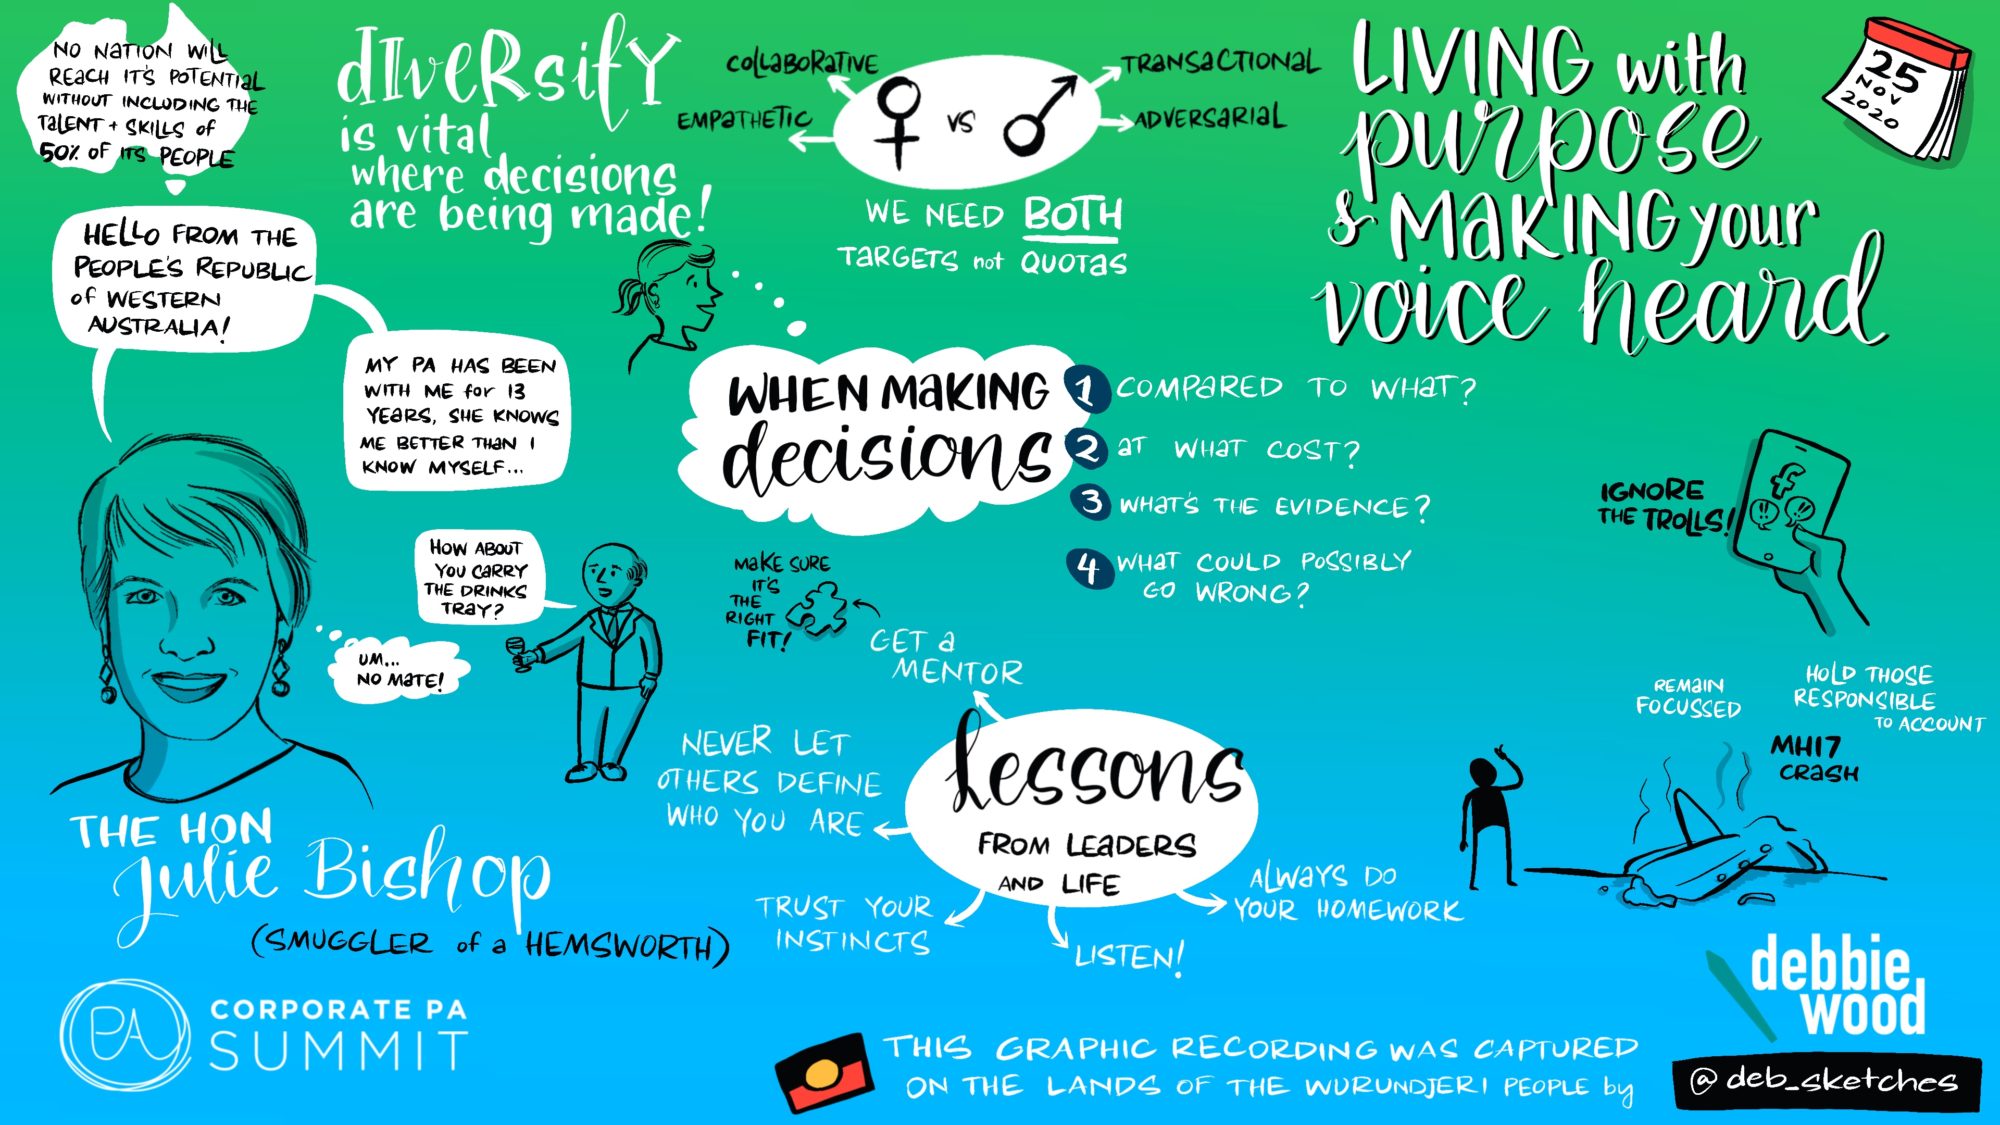 NO NATION WILL
REACH IT'S POTENTIAL
WITHOUT INCLUDING THE
TALENT + SKILLS of
50% OF ITS PEOPLE
HELLO FROM THE
PEOPLE'S REPUBLIC
of WESTERN
AUSTRALIA!
MY PA HAS BEEN
WITH ME for 13
YEARS, SHE KNOWS
ME BETTER THAN I
KNOW MYSELF...
dIveRsifY
is vital
where decisions
are being made!
COLLABORATIVE
EMPATHETIC
VS
TRANSACTIONAL
ADVERSARIAL
WE NEED BOTH
TARGETS not QUOTAS
LIVING with
purpose
& MAKING your
voice heard
25
NOV
2020
WHEN MAKING
decisions
1 COMPARED TO WHAT?
2 AT WHAT COST?
3 WHAT'S THE EVIDENCE?
4 WHAT COULD POSSIBLY
GO WRONG?
IGNORE
THE TROLLS!
f
!?! !!
HOW ABOUT
YOU CARRY
THE DRINKS
TRAY?
UM...
NO MATE!
MAKE SURE
IT'S
THE
RIGHT
FIT!
GET a
MENTOR
NEVER LET
OTHERS DEFINE
WHO YOU ARE
Lessons
FROM LEADERS
AND LIFE
TRUST YOUR
INSTINCTS
LISTEN!
ALWAYS DO
YOUR HOMEWORK
REMAIN
FOCUSSED
HOLD THOSE
RESPONSIBLE
TO ACCOUNT
MH17
CRASH
THE HON
Julie Bishop
(SMUGGLER of a HEMSWORTH)
PA
CORPORATE PA
SUMMIT
THIS GRAPHIC RECORDING WAS CAPTURED
ON THE LANDS OF THE WURUNDJERI PEOPLE by
debbie
wood
@deb_sketches